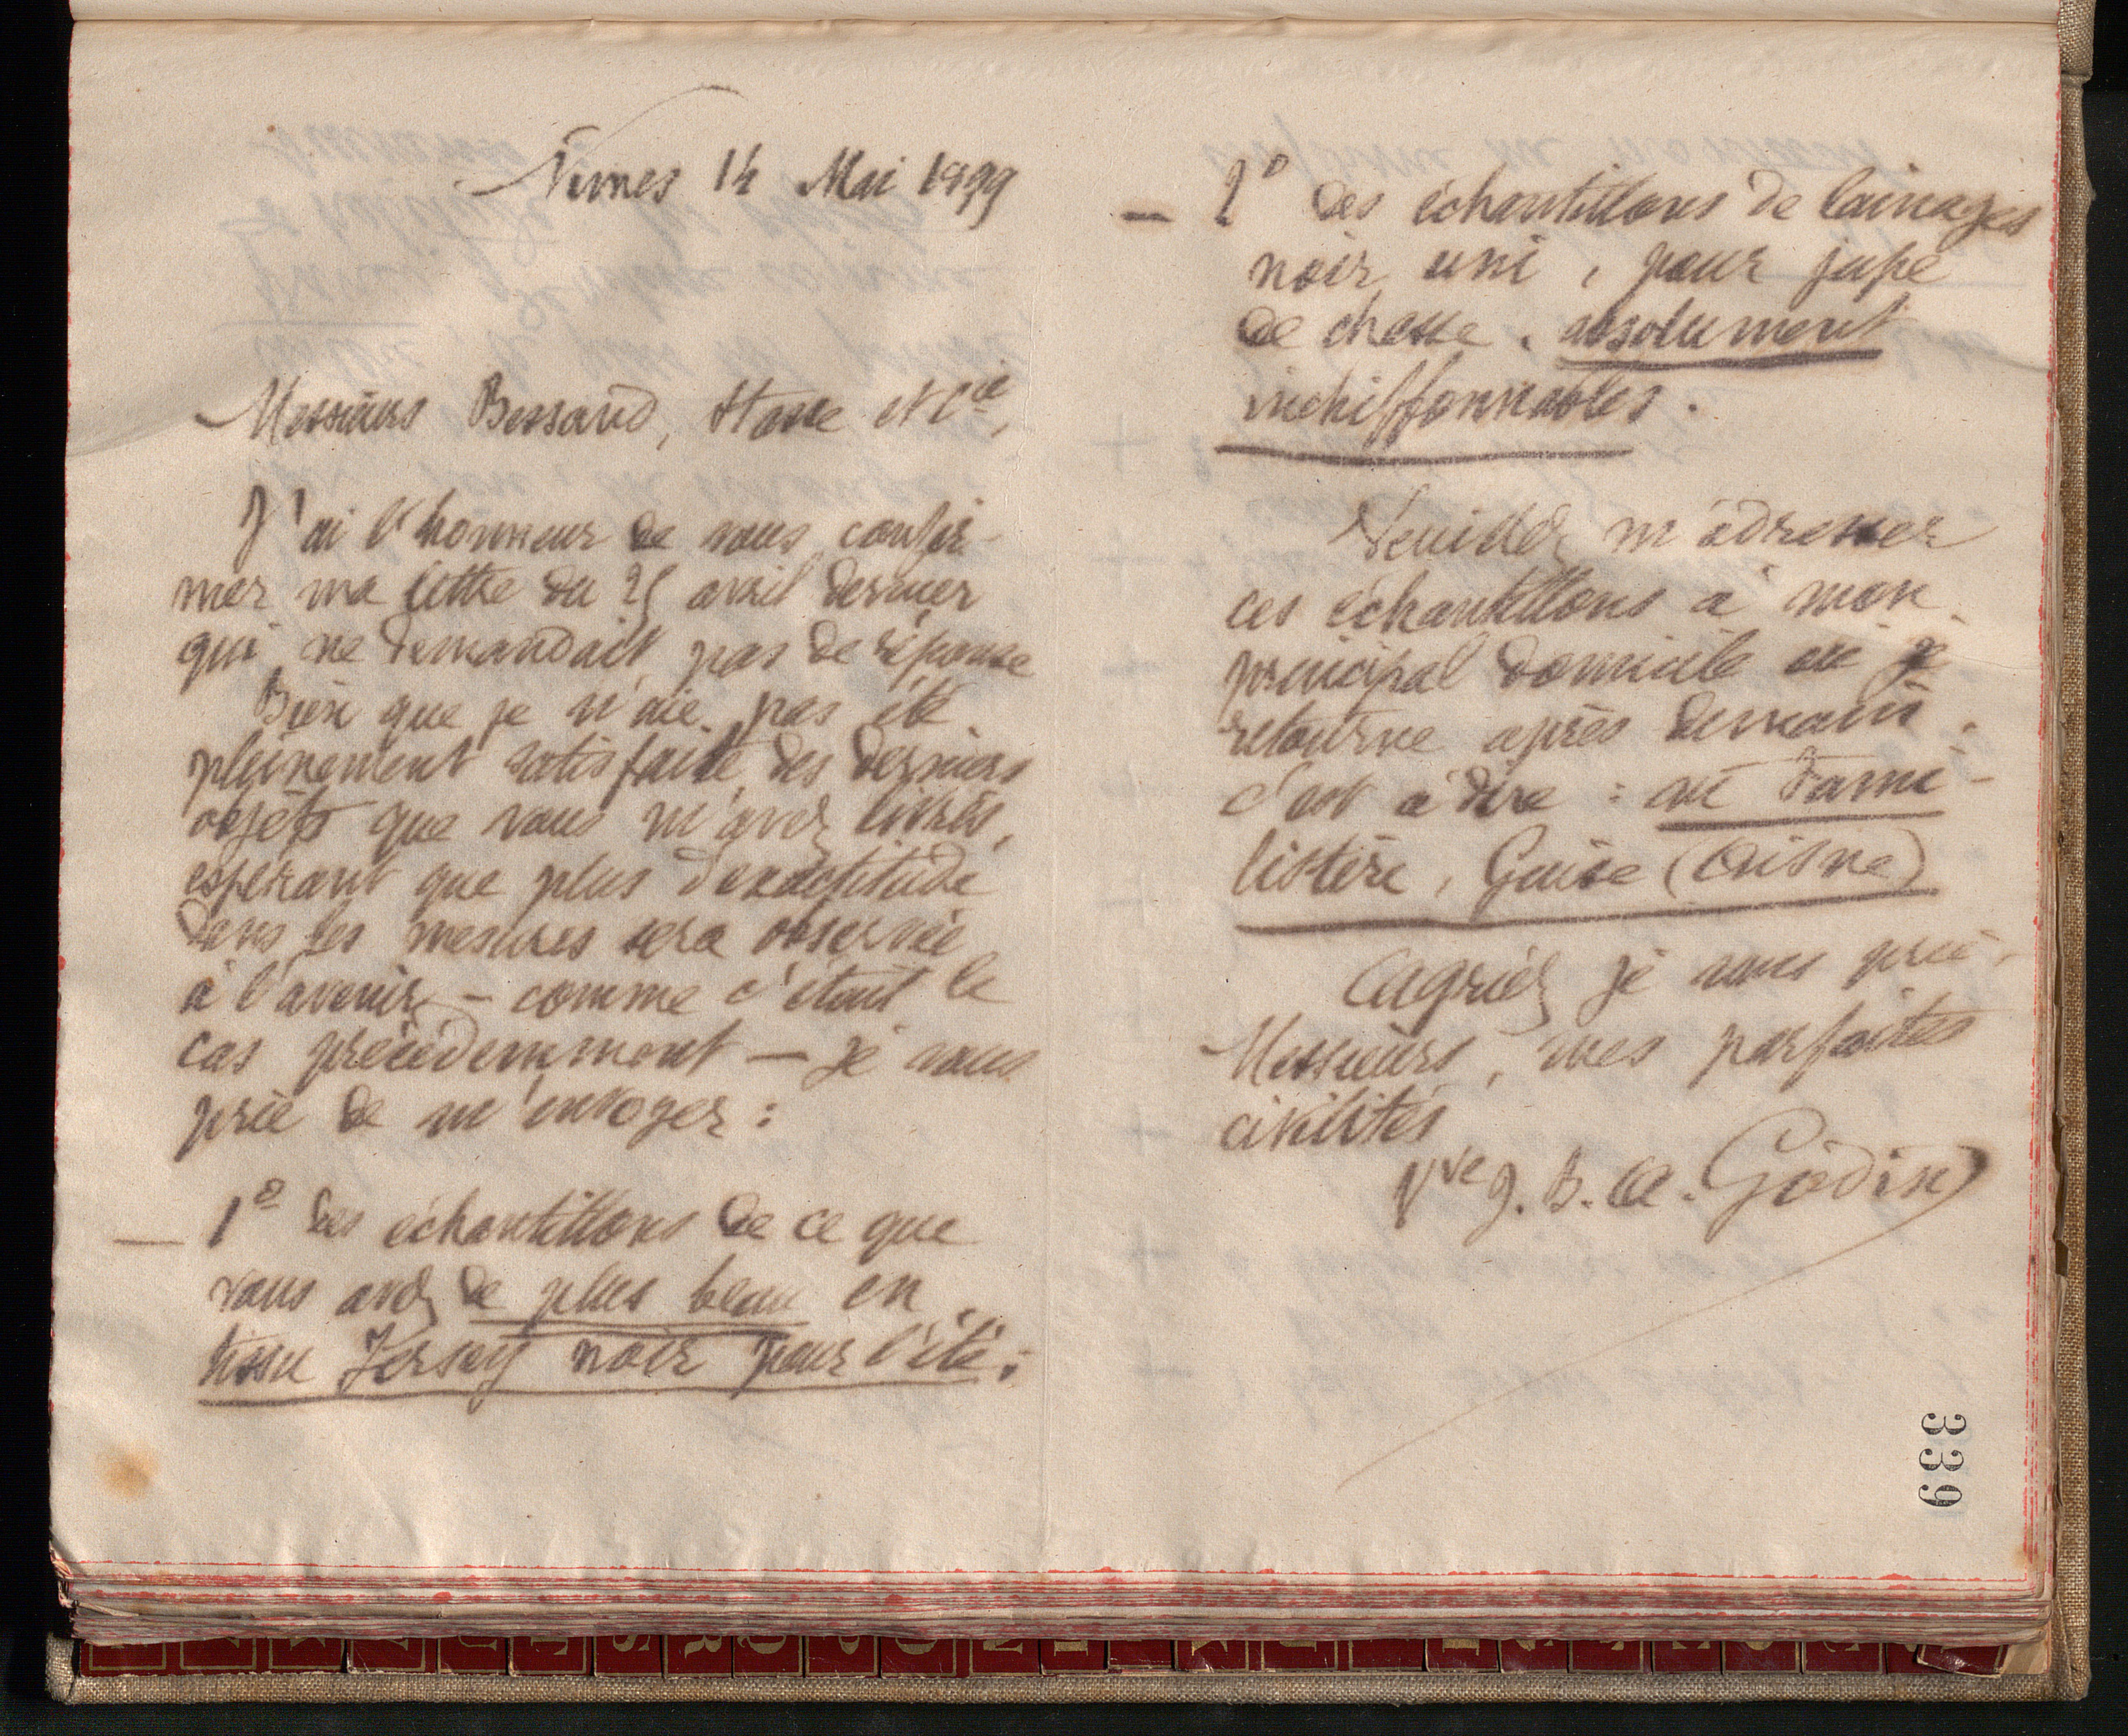 Nîmes 14 Mai 1899
Messieurs Bessand, Stasse et Cie,
J'ai l'honneur de vous confir-
mer ma lettre du 25 avril dernier
qui ne demandait pas de réponse
Bien que je n'aie pas été
pleinement satisfaite des derniers
objets que vous m'avez livrés,
espérant que plus d'exactitude
dans les mesures sera observée
à l'avenir - comme c'était le
cas précédemment - je vous
prie de m'envoyer :
— 1o des échantillons de ce que
vous avez de plus beau en
tissu Jersey noir pour l'été ;
— 2o des échantillons de lainages
noir uni, pour jupe
de chasse, absolument
inchiffonnables.
Veuillez m'adresser
ces échantillons à mon
principal domicile où je
retourne après demain,
c'est à dire : au Fami-
listère, Guise (Aisne)
Agréez je vous prie,
Messieurs, mes parfaites
civilités
Vve J. B. A. Godin
339